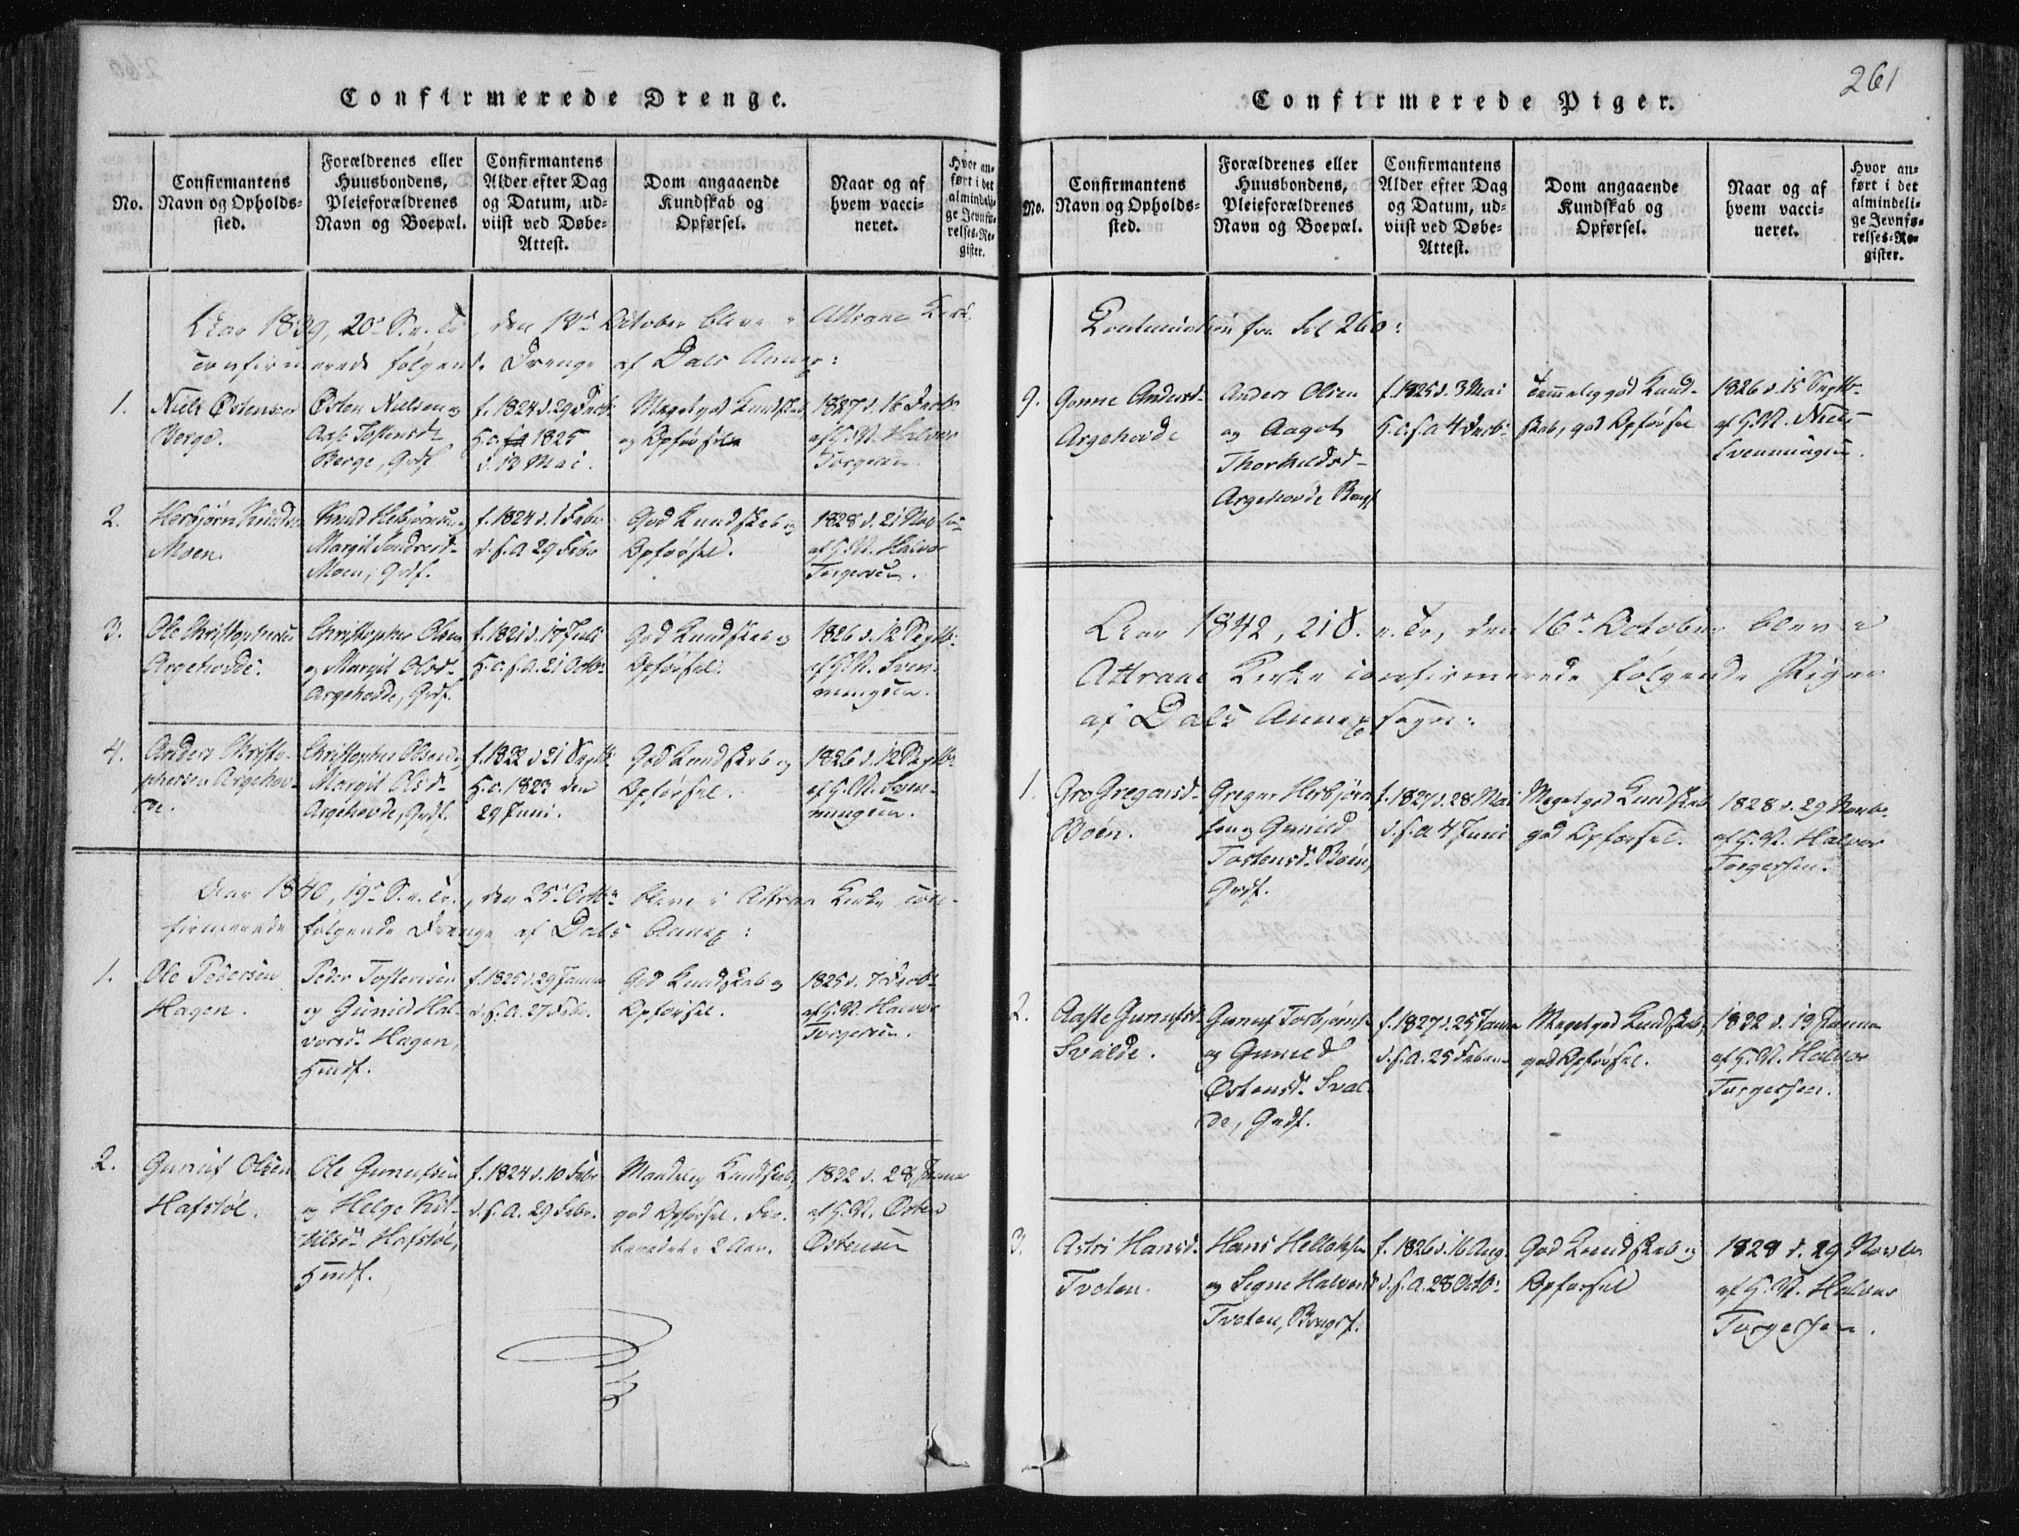 Confirmerede Drenge.
No.
Confirmantens
Navn og Opholds-
sted.
Forældrenes eller
Huusbondens,
Pleieforældrenes
Navn og Boepæl.
Confirmantens
Alder efter Dag
og Datum, ud-
viist ved Døbe-
Attest.
Dom angaaende
Kundskab og
Opførsel.
Naar og af
hvem vacci-
neret.
Hvor an-
ført i det
almindeli-
ge Jevnfø-
relses-Re-
gister.
Aar 1839, 20d S. e. Tr., den 13d October bleve i Attraae Kirke
confirmerede følgende Drenge af Dals Annex:
1.
Niels Østensen
Berge.
Østen Nielsen og
Aase Tostensd.
Berge, Grdf.
f. 1824 d. 29 Decb.
H. o. 1825
d. 12 Mai.
Meget god Kundskab
og Opførsel
1827 d. 16 Decb.
af G. N. Halvor
Torgersen.
2.
Herbjørn Knudsen
Moen.
Knud Herbjørnsen
Margit Sondresd.
Moen, Grdf.
f. 1824 d. 1 Febr.
d. s. A. 29 Febr.
God Kundskab og
Opførsel.
1828 d. 21 Novb.
af G. N. Halvor
Torgersen.
3.
Ole Christophersen
Argehovde.
Christopher Olsen
og Margit Olsd.
Argehovde, Grdf.
f. 1821 d. 17 Juli
H. o. s. A. 21 Octb.
God Kundskab og
Opførsel.
1826 d. 12 Septb.
af G. N. Sven-
nungsen.
4.
Anders Christo-
phersen Argehov-
de.
Christopher Olsen og
Margit Olsd.
Argehovde, Grdf.
f. 1822 d. 21 Septb.
H. o. 1823 den
29 Juni.
God Kundskab og
Opførsel.
1826 d. 12 Septb.
af G. N. Sven-
nungsen.
Aar 1840, 19d S. e. Tr., den 25d Octbr. bleve i Attraa Kirke con-
firmerede følgende Drenge af Dals Annex:
1.
Ole Pedersen
Hagen.
Peder Tostensen
og Gunild Hal-
vorsd. Hagen,
Hmdf.
f. 1825 d. 29 Janua
d. s. A. 27 Febr.
God Kundskab og
Opførsel.
1825 d. 7 Decb.
af G. N. Halvor
Torgersen.
2.
Gunuf Olsen
Hafstøl.
Ole Gunufsen
og Helge Kit-
tilsd. Hafstøl,
Hmdf.
f. 1824 d. 10 Febr
d. s. A. 29 Febr.
Maadelig Kundskab,
god Opførsel. For-
beredet i 2 Aar.
1832 d. 28 Janua
af G. N. Østen
Østensen
261
Confirmerede Piger.
No.
Confirmantens
Navn og Opholds-
sted.
Forældrenes eller
Huusbondens,
Pleieforældrenes
Navn og Boepæl.
Confirmantens
Alder efter Dag
og Datum, ud-
viist ved Døbe-
Attest.
Dom angaaende
Kundskab og
Opførsel.
Naar og af
hvem vacci-
neret.
Hvor an-
ført i det
almindeli-
ge Jevnfø-
relses-Re-
gister.
Continuation fra Fol 260:
9.
Gonne Andersd.
Argehovde
Anders Olsen
og Aagot
Thorkildsd.
Argehovde
f. 1825 d. 3 Mai
H. o. s. A. 4 Decb.
Temmelig god Kund-
skab, god Opførsel
1826 d. 15 Septb.
af G. N. Niels
Svennungsen.
Aar 1842, 21 S. e. Tr., den 16d October blev i
Attraae Kirke confirmerede følgende Piger
af Dals Annexsogn:
1.
Gro Gregarsd.
Bøen.
Gregar Herbjørn-
sen og Gunild
Tostensd. Bøen,
Grdf.
f. 1827 d. 28 Mai
d. s. A. 4 Juni
Meget god Kundskab
god Opførsel.
1828 d. 29 Novb.
af G. N. Halvor
Torgersen.
2.
Aaste Gunufsd.
Svalde.
Gunuf Torbjørns.
og Gunild
Østensd. Sval-
de, Grdf.
f. 1827 d. 25 Janua
d. s. A. 25 Febr.
Meget god Kundskab,
god Opførsel.
1832 d. 19 Janua
af G. N. Halvor
Torgersen.
3.
Astri Hansd.
Tveten.
Hans Hellekse
og Signe Halvorsd.
Tveten, Brugsf.
f. 1826 d. 16 Aug.
d. s. A. 28 Octb.
God Kundskab og
Opførsel
1828 d. 29 Novbr
af G. N. Halvor
Torgersen.